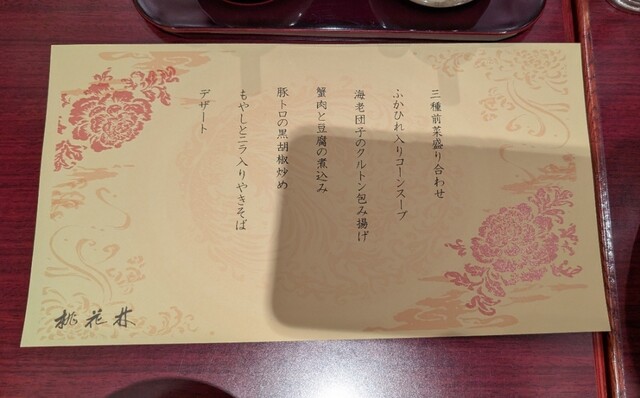 三種前菜盛り合わせ
ふかひれ入りコーンスープ
海老団子のクルトン包み揚げ
蟹肉と豆腐の煮込み
豚トロの黒胡椒炒め
もやしとニラ入りやきそば
デザート
桃花林